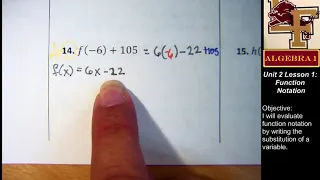 14. f(-6) + 105 = 6(-6) - 22 + 105
15. h(
f(x) = 6x - 22
ALGEBRA 1
Unit 2 Lesson 1:
Function
Notation
Objective:
I will evaluate
function notation
by writing the
substitution of a
variable.